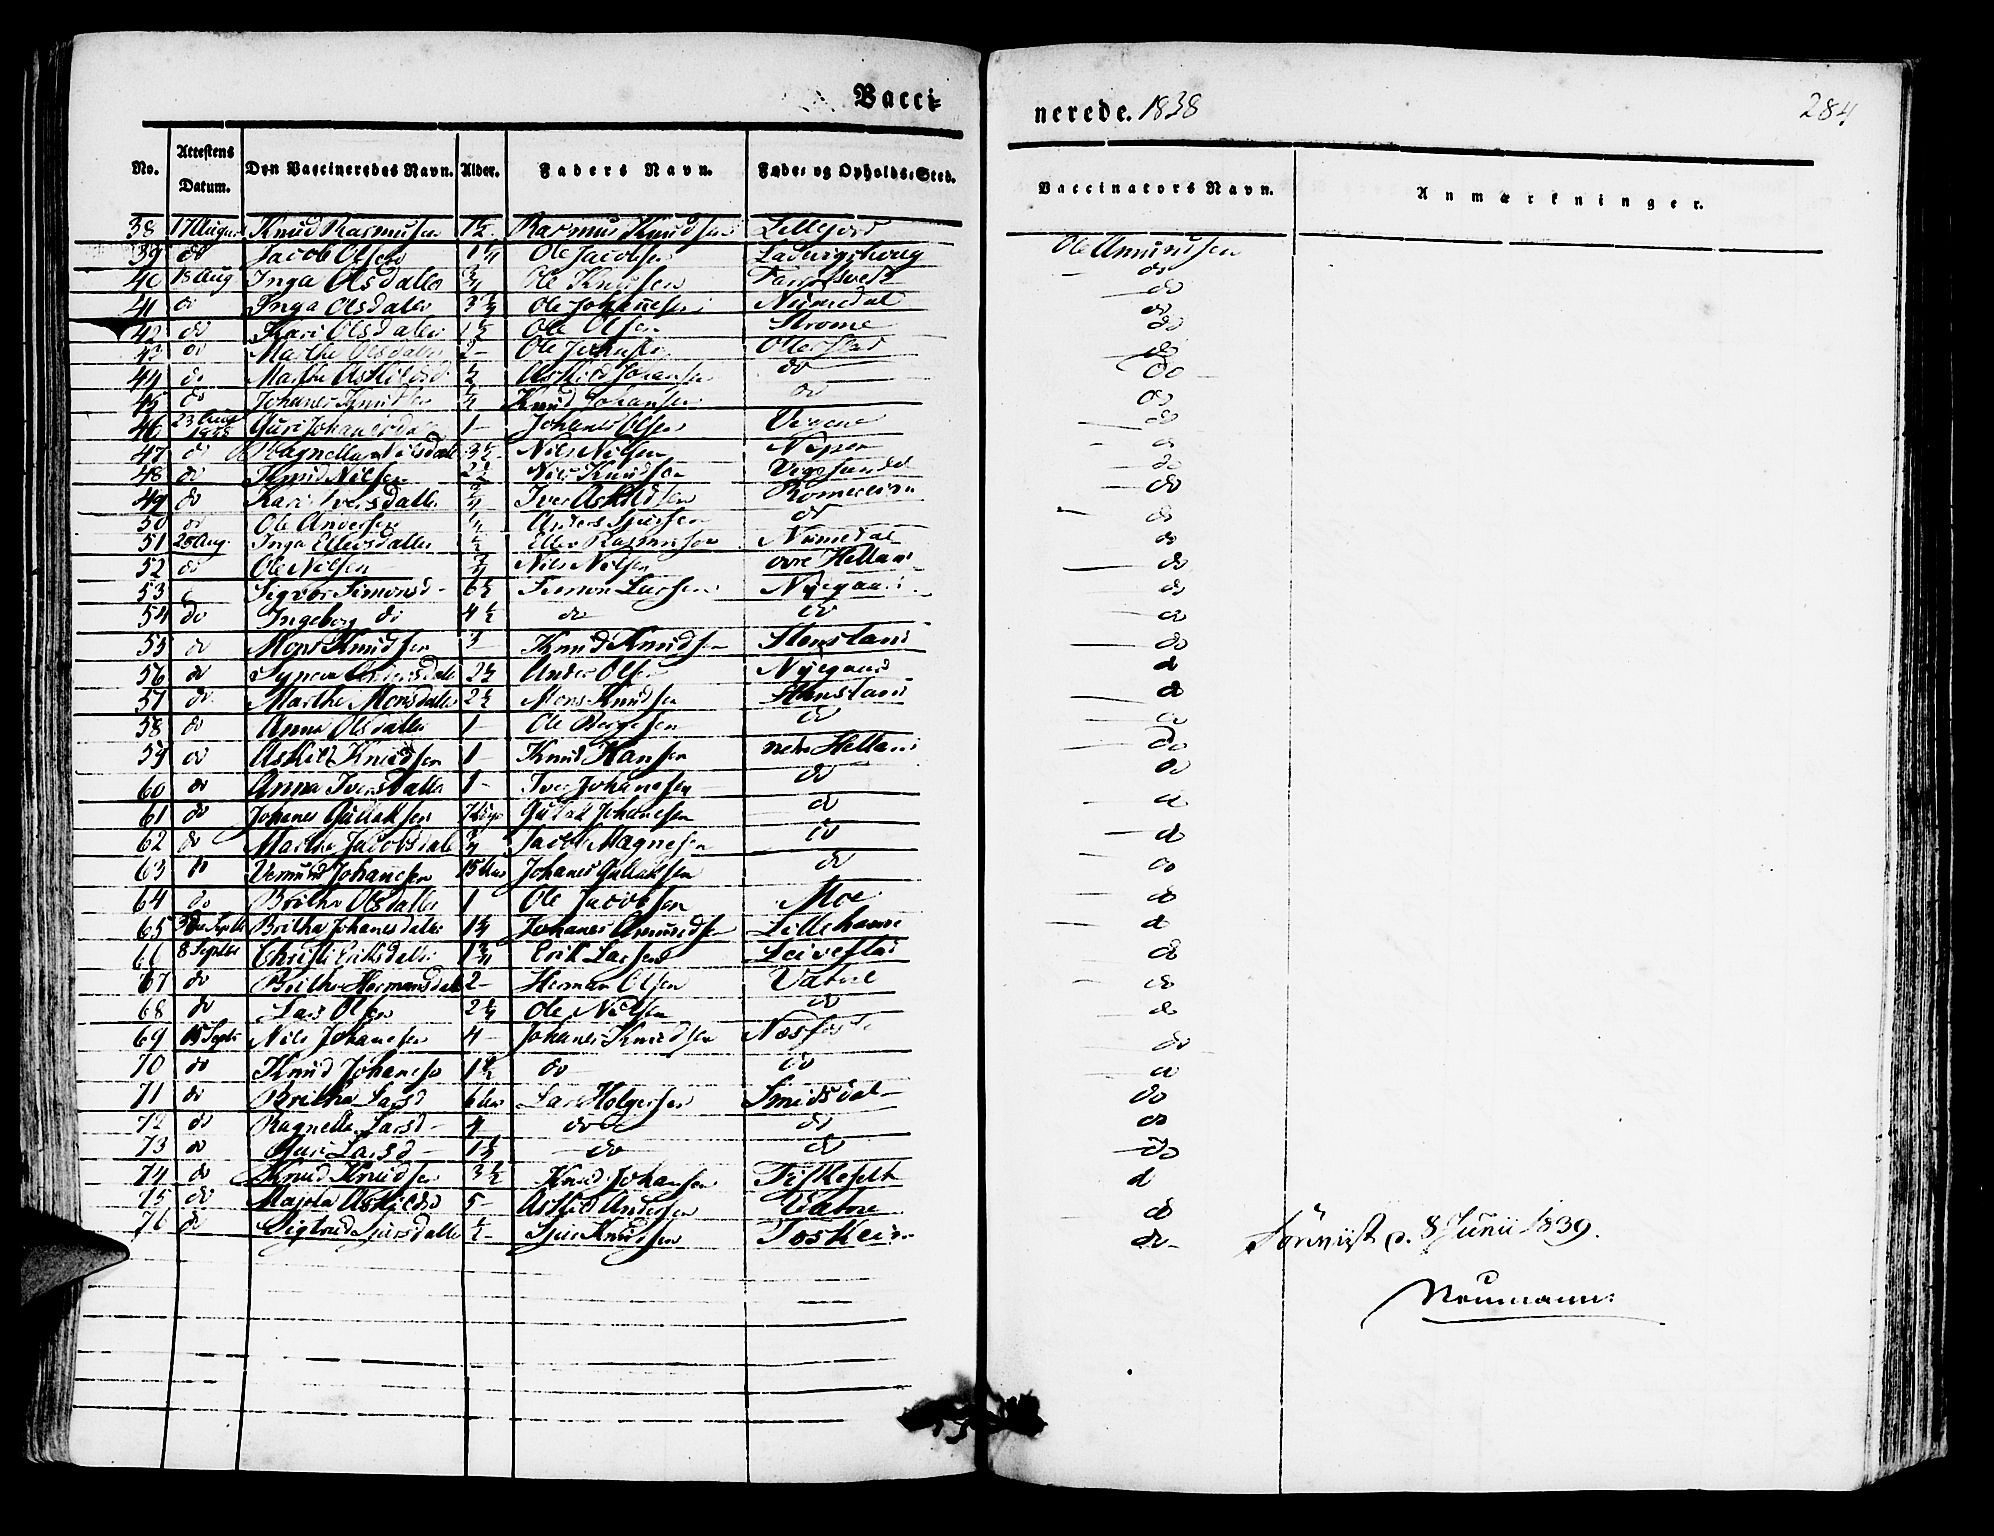 Vacci=
nerede. 1838
284
No. Attestens Datum. Den Vaccineredes Navn. Alder. Faders Navn. Føde- og Opholds-Sted. Vaccinators Navn. Anmærkninger.
38 17 August Knud Rasmusen 1½ Rasmus Knudsen Lillejord Ole Amundsen
39 do Jacob Olsen 1¼ Ole Jacobsen Ladvigshoug do
40 18 Aug Inga Olsdatter ¾ Ole Knudsen do
41 do Inga Olsdatter Ole Johannesen Nümedal do
42 do Kari Olsdatter 1½ Ole Olsen Strømme do
43 do Marthe Olsdatter 2 - Ole Johansen Otterstad do
44 do Marthe Askildsd ½ Askild Johansen do do
45 do Johanes Knudsen ¼ Knud Johansen do do
46 23 Aug 1838 Guri Johanesdatter 1 - Johanes Olsen do
47 do Ragnella Nilsdatt 3½ Nils Nilsen do
48 do Knud Nilsen 2½ Nils Knudsen do
49 do Kari Iversdatter Iver Askildsen do
50 do Ole Andersen ¼ Anders Sjursen do do
51 26 Aug. Inga Ellersdatter ½ Eller Rasmusen Nümedal do
52 do Ole Nilsen ¾ Nils Nilsen øvre Helland do
53 Sigvor Simonsd - 6½ Simon Larsen Nyegaard do
54 do Ingeborg do 4½ do do do
55 do Mons Knudsen 3 - Knud Knudsen Stensland do
56 do Synneva Andersdatt 2½ Anders Olsen Nyegaard do
57 do Marthe Monsdatter 2½ Mons Knudsen Stensland do
58 do Anna Olsdatter 1 - Ole Børgesen do do
59 do Askild Knudsen 1 - Knud Hansen nedre Helland do
60 do Anna Iversdatter 1 - Iver Johanesen do do
61 do Johanes Gullaksen Gullak Johanesen do do
62 do Marthe Jacobsdatt ¾ Jacob Magnesen do do
63 do Vemund Johanesen Johanes Gullaksen do do
64 do Britha Olsdatter 1 Ole Jacobsen Moe do
65 3die Septbr Britha Johanesdatter 1¼ Johanes Amundsen Lillehamre do
66 8 Septbr Christi Eriksdatter 1¾ Erik Larsen Leivestad do
67 do Britha Hermansdatt 2 - Herman Olsen Vatne do
68 do Lars Olsen 2¼ Ole Nilsen do do
69 15 Septr Nils Johanesen 4 - Johanes Knudsen do
70 do Knud Johanesen 1½ do do do
71 do Britha Larsd Lars Holgersen Smidsdal do
72 do Ragnella Larsd - 4 - do do do
73 do Guri Larsd - 1½ do do do
74 do Knud Knudsen 3½ Knud Johansen do
75 do Askildsd 5 - Askild Andersen Vatne do
76 do Sigtrud Sjursdatter ½ - Sjur Knudsen Toskeim do -
8 Junii 1839.
Neumann.